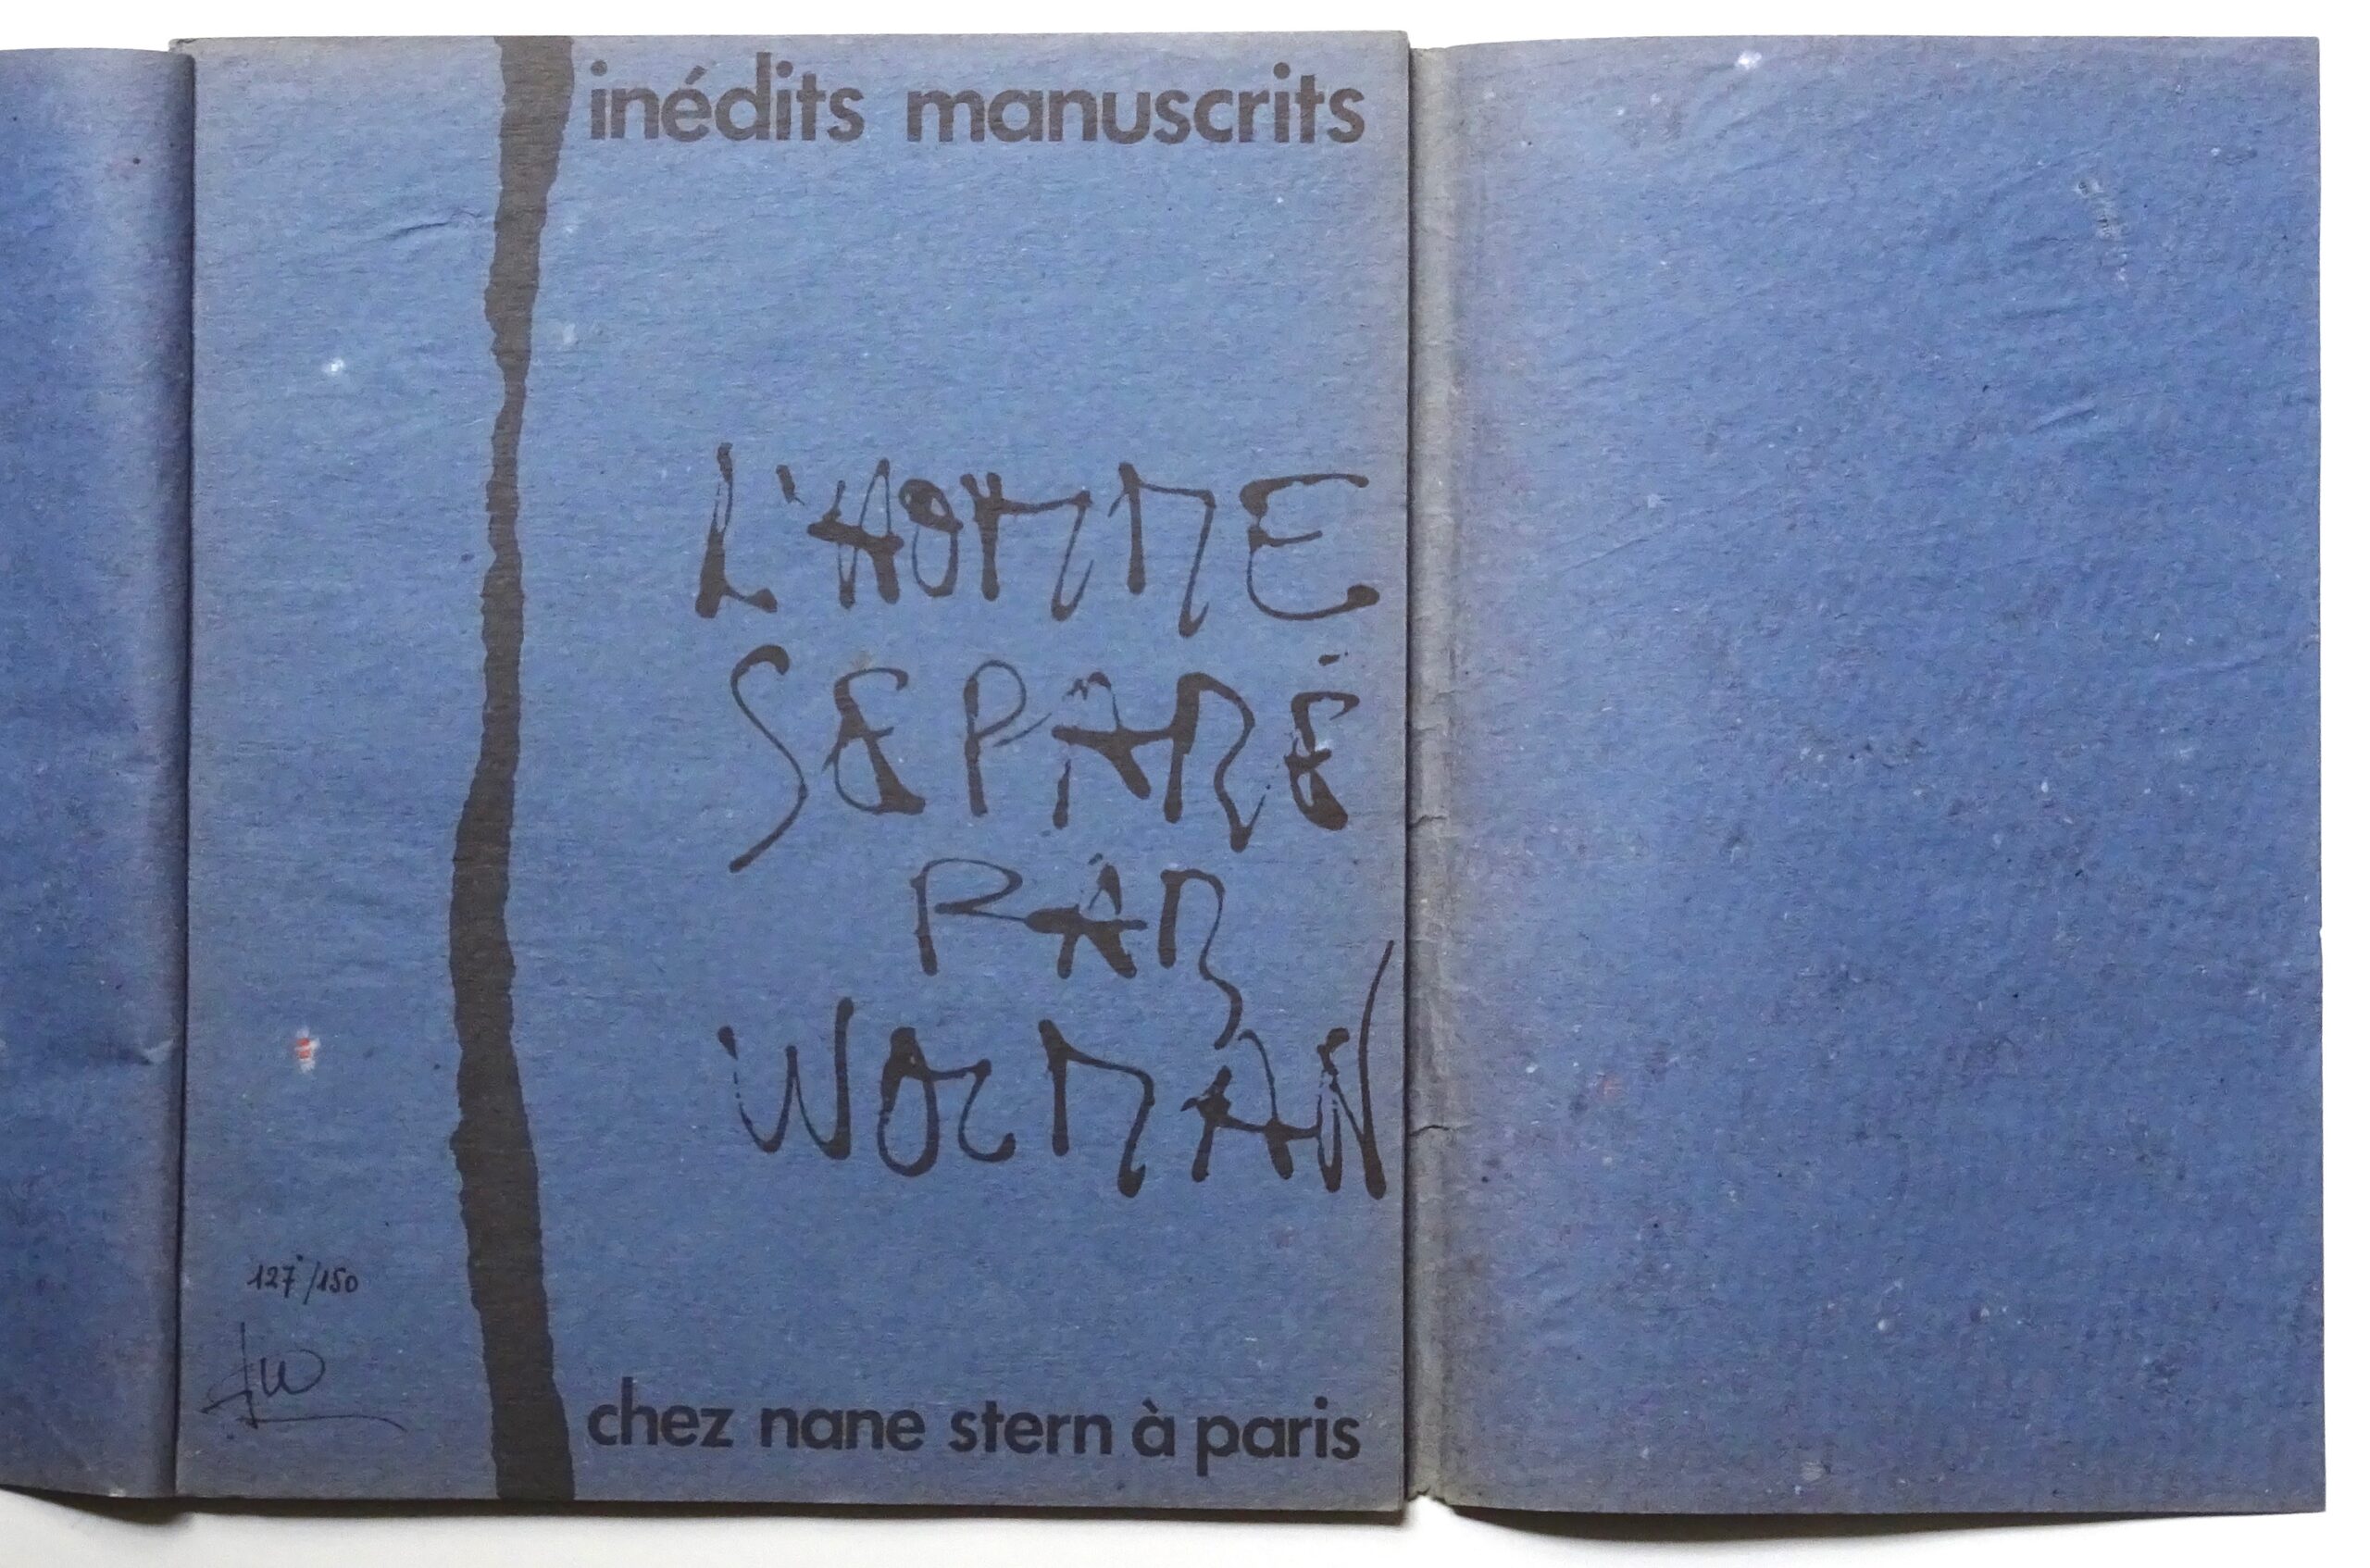 inédits manuscrits
L'HOMME
SEPARÉ
PAR
WOLMAN
127/150
chez nane stern à paris